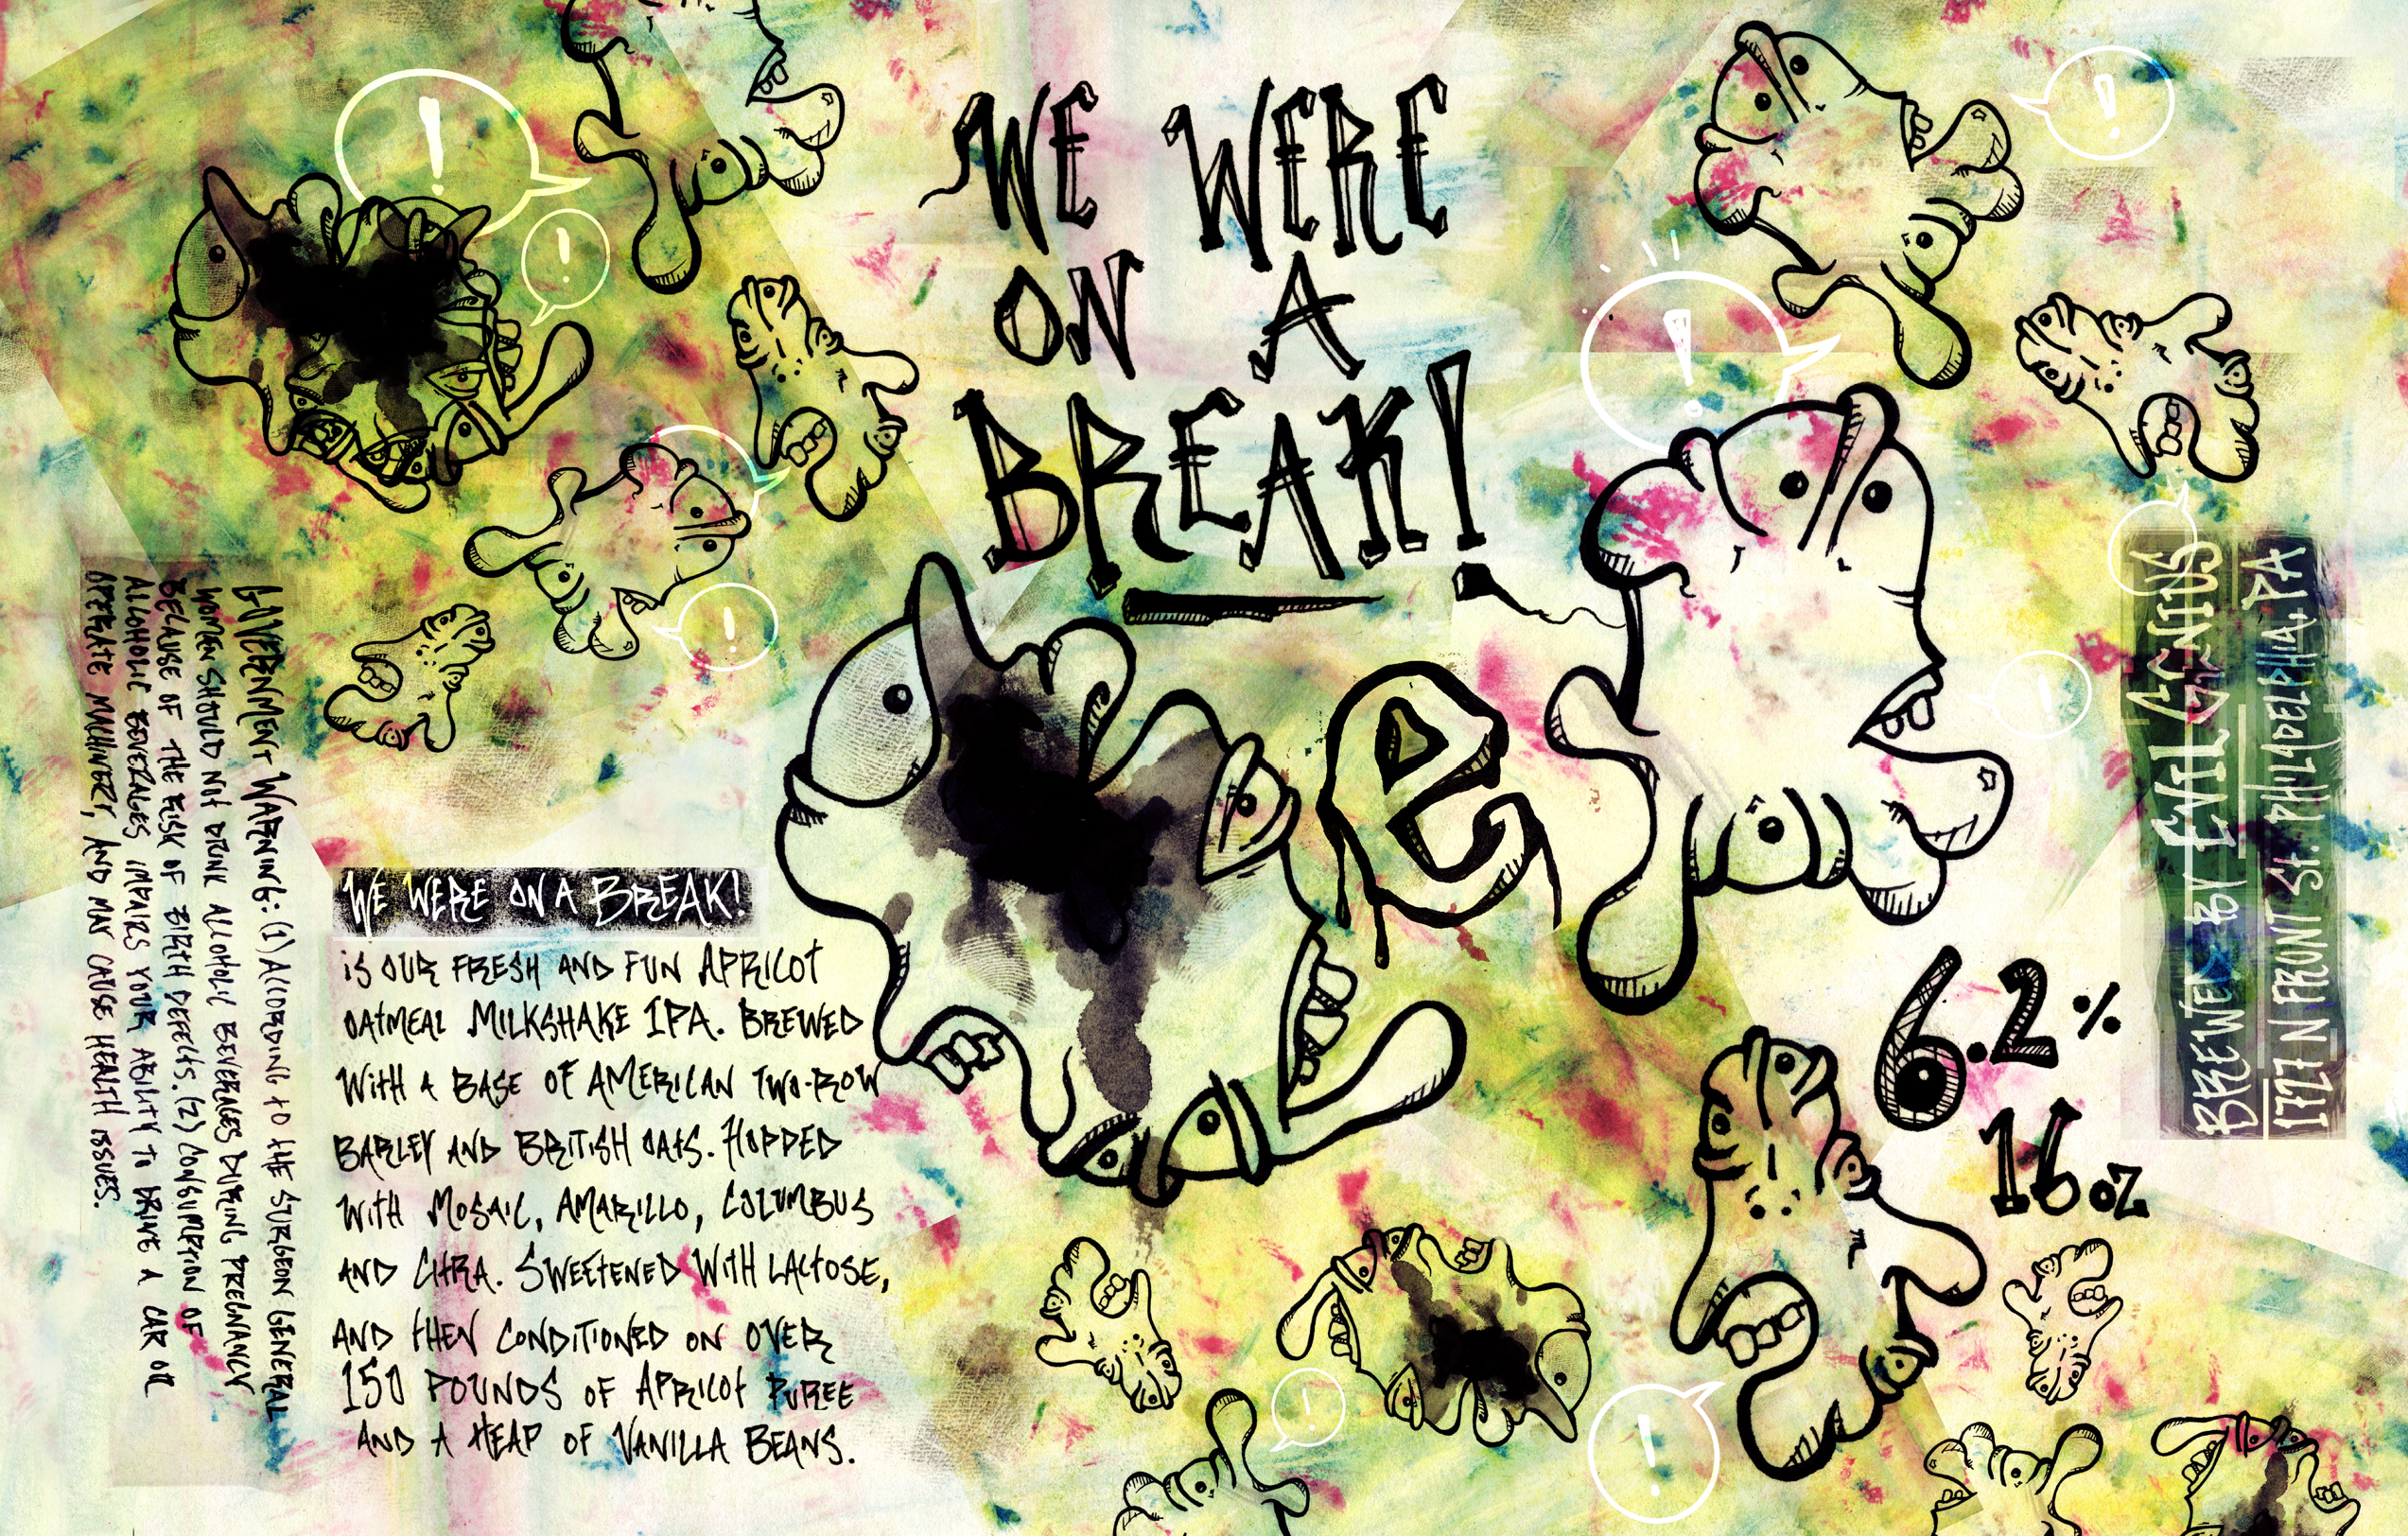 WE WERE
ON A
BREAK!
e
6.2%
16 oz
BREWED BY EVIL GENIUS
1727 N FRONT ST. PHILADELPHIA, PA
WE WERE ON A BREAK!
IS OUR FRESH AND FUN APRICOT
OATMEAL MILKSHAKE IPA. BREWED
WITH A BASE OF AMERICAN TWO-ROW
BARLEY AND BRITISH OATS. HOPPED
WITH MOSAIC, AMARILLO, COLUMBUS
AND CITRA. SWEETENED WITH LACTOSE,
AND THEN CONDITIONED ON OVER
150 POUNDS OF APRICOT PUREE
AND A HEAP OF VANILLA BEANS.
GOVERNMENT WARNING: (1) ACCORDING TO THE SURGEON GENERAL
WOMEN SHOULD NOT DRINK ALCOHOLIC BEVERAGES DURING PREGNANCY
BECAUSE OF THE RISK OF BIRTH DEFECTS. (2) CONSUMPTION OF
ALCOHOLIC BEVERAGES IMPAIRS YOUR ABILITY TO DRIVE A CAR OR
OPERATE MACHINERY, AND MAY CAUSE HEALTH ISSUES.
!
!
!
!
!
!
!
!